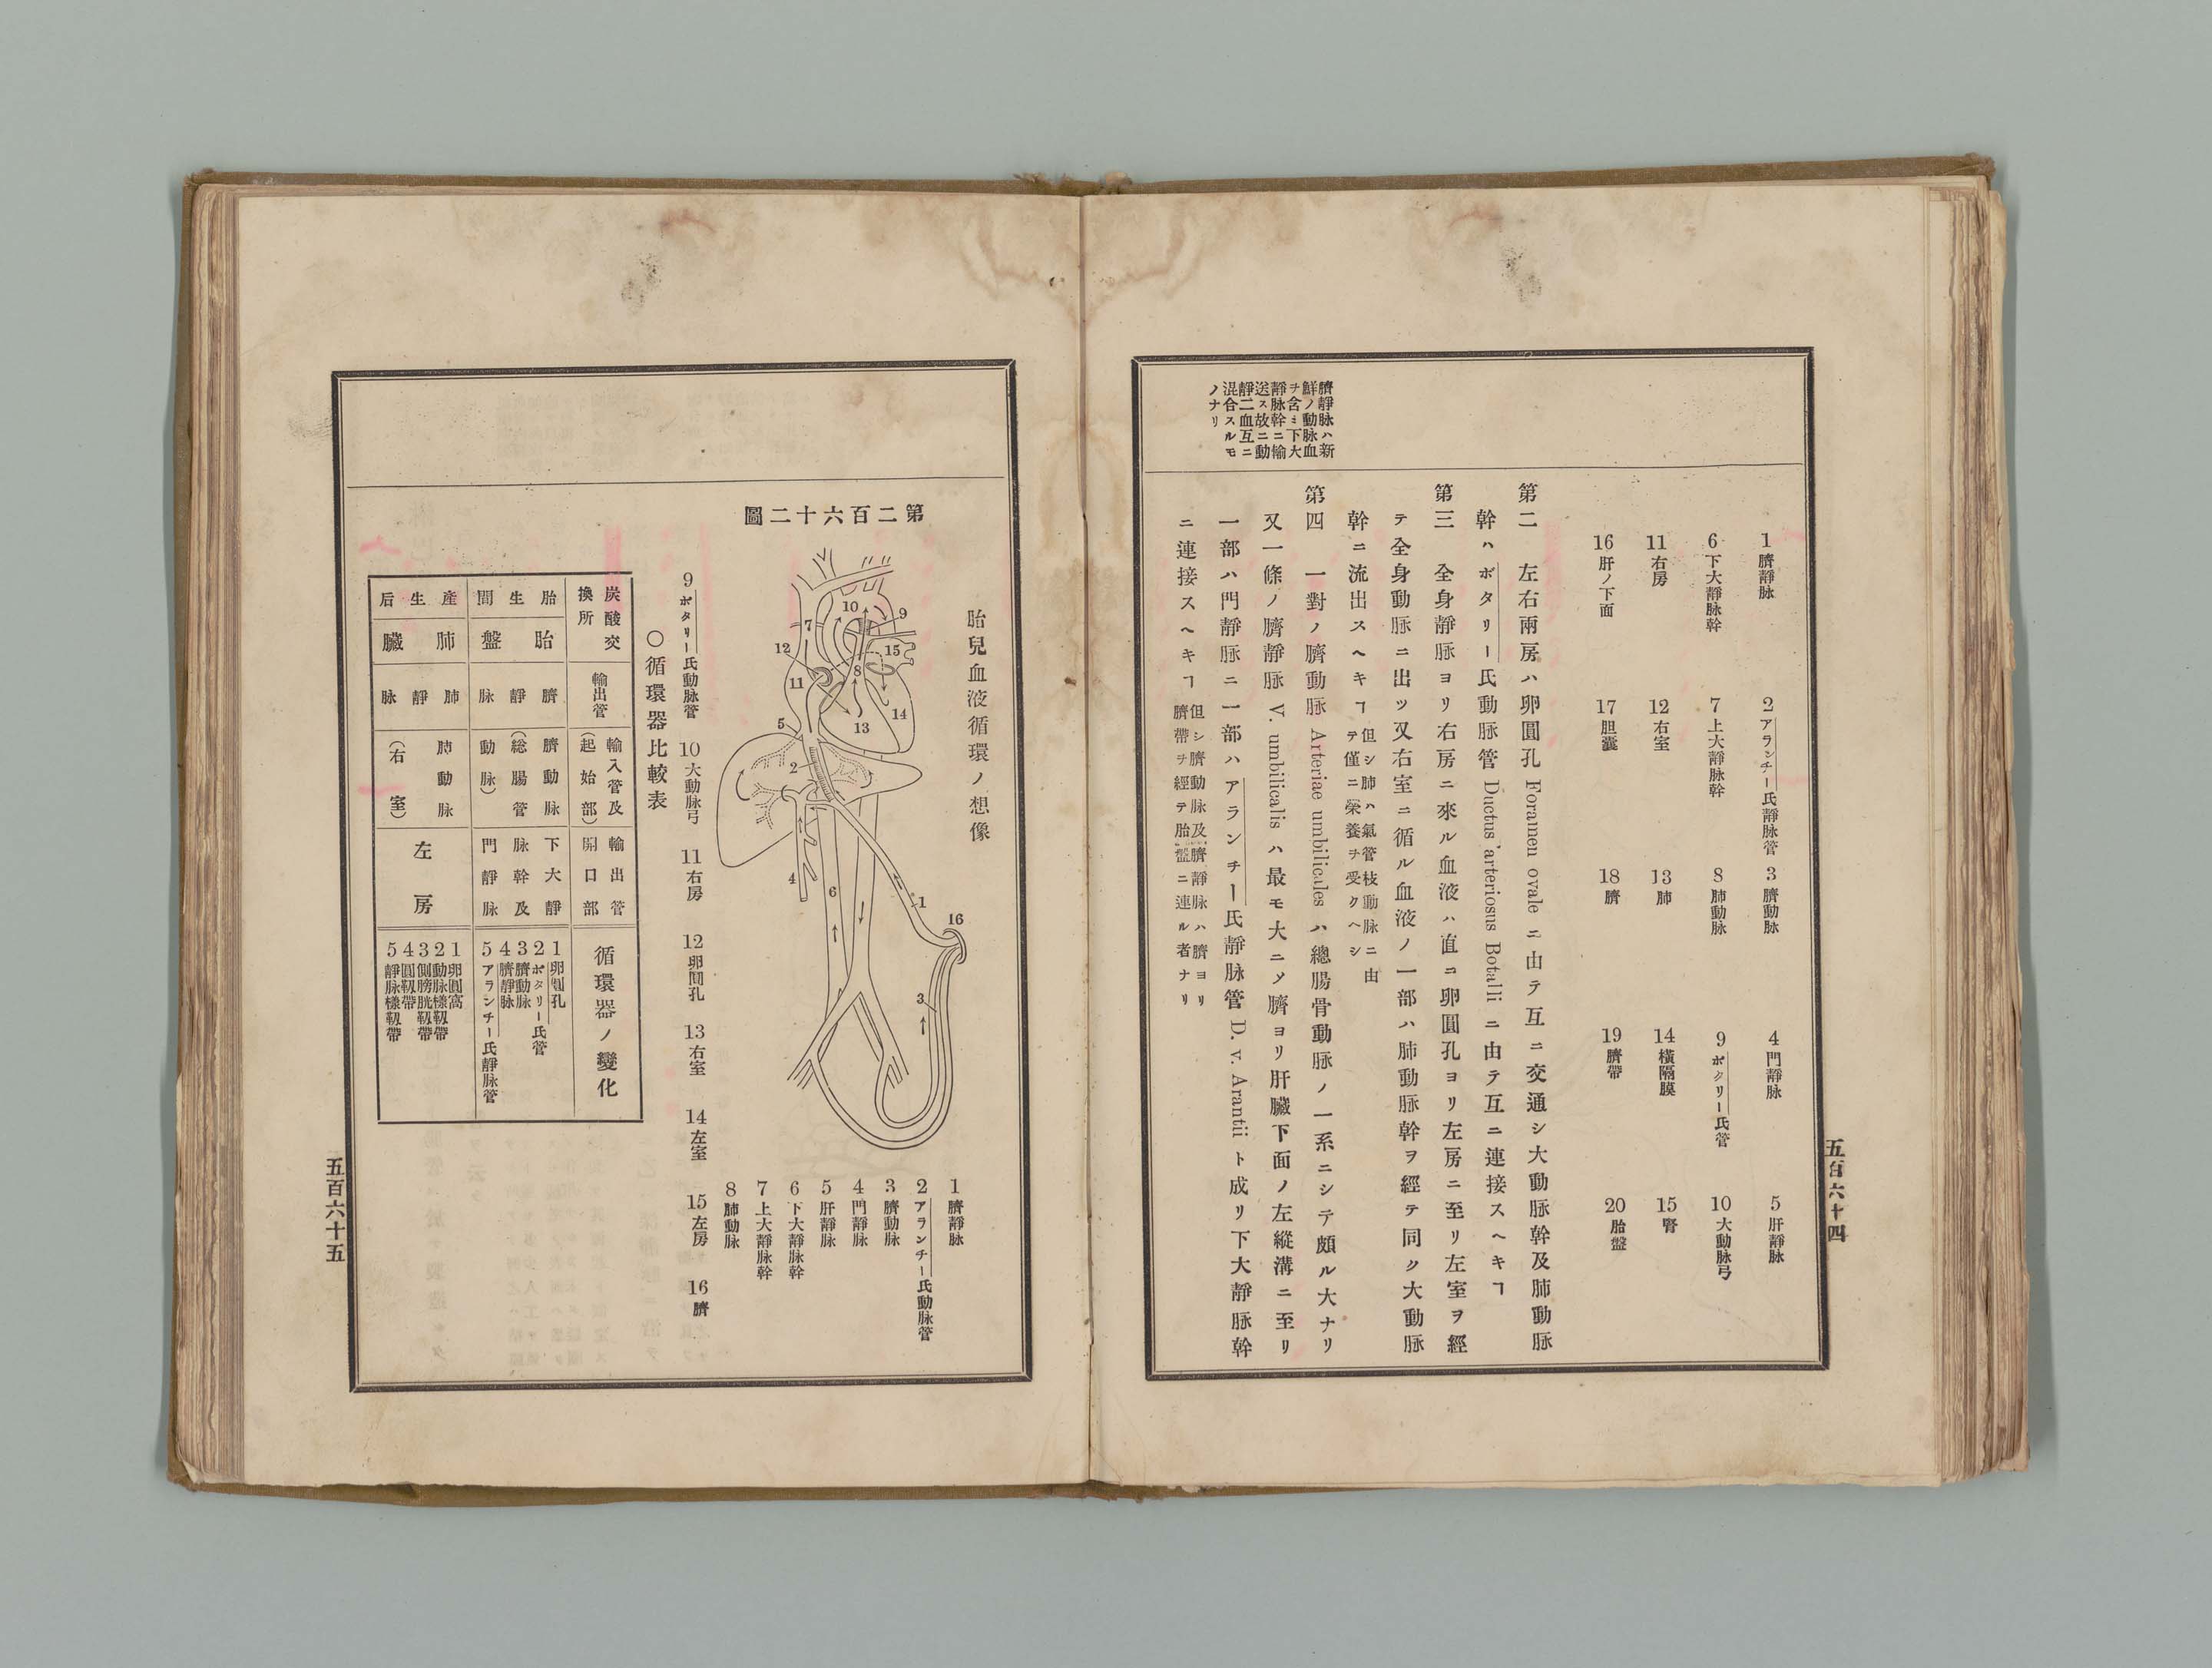 五百六十四
1 臍靜脉
2 アランチー氏靜脉管
3 臍動脉
4 門靜脉
5 肝靜脉
6 下大靜脉幹
7 上大靜脉幹
8 肺動脉
9 ボタリー氏管
10 大動脉弓
11 右房
12 右室
13 肺
14 横隔膜
15 腎
16 肝ノ下面
17 胆囊
18 臍
19 臍帶
20 胎盤
臍靜脉ハ新
鮮ノ動脉血
ヲ含ミ下大
靜脉幹ニ輸
送ス故ニ動
靜二血互ニ
混合スルモ
ノナリ
第二 左右兩房ハ卵圓孔 Foramen ovale ニ由テ互ニ交通シ大動脈幹及肺動脈
幹ハボタリー氏動脈管 Ductus arteriosus Botalli ニ由テ互ニ連接スヘキヿ
第三 全身靜脈ヨリ右房ニ來ル血液ハ直ニ卵圓孔ヨリ左房ニ至リ左室ヲ經
テ全身動脈ニ出ツ又右室ニ循ル血液ノ一部ハ肺動脈幹ヲ經テ同ク大動脈
幹ニ流出スヘキヿ 但シ肺ハ氣管枝動脈ニ由
テ僅ニ榮養ヲ受クヘシ
第四 一對ノ臍動脈 Arteriae umbilicales ハ總腸骨動脈ノ一系ニシテ頗ル大ナリ
又一條ノ臍靜脈 V. umbilicalis ハ最モ大ニメ臍ヨリ肝臟下面ノ左縱溝ニ至リ
一部ハ門靜脈ニ一部ハアランチー氏靜脈管 D. v. Arantii ト成リ下大靜脈幹
ニ連接スヘキヿ 但シ臍動脈及臍靜脈ハ臍ヨリ
臍帶ヲ經テ胎盤ニ連ル者ナリ
第二百六十二圖
胎兒血液循環ノ想像
10
9
7
12
15
8
11
14
5
13
2
4
6
1
16
3
1 臍靜脉
2 アランチー氏動脉管
3 臍動脉
4 門靜脉
5 肝靜脉
6 下大靜脉幹
7 上大靜脉幹
8 肺動脉
9 ボタリー氏動脉管
10 大動脉弓
11 右房
12 卵圓孔
13 右室
14 左室
15 左房
16 臍
○循環器比較表
炭酸交
換所
輸出管
輸入管及
(起始部)
輸出管
開口部
循環器ノ變化
胎生間
胎盤
臍靜脉
臍動脉
(総腸管
動脉)
下大靜
脉幹及
門靜脉
1 卵圓孔
2 ボタリー氏管
3 臍動脉
4 臍靜脉
5 アランチー氏靜脉管
產生后
肺臟
肺靜脉
肺動脉
(右室)
左房
1 卵圓窩
2 動脉樣靱帶
3 側膀胱靱帶
4 圓靱帶
5 靜脉樣靱帶
五百六十五